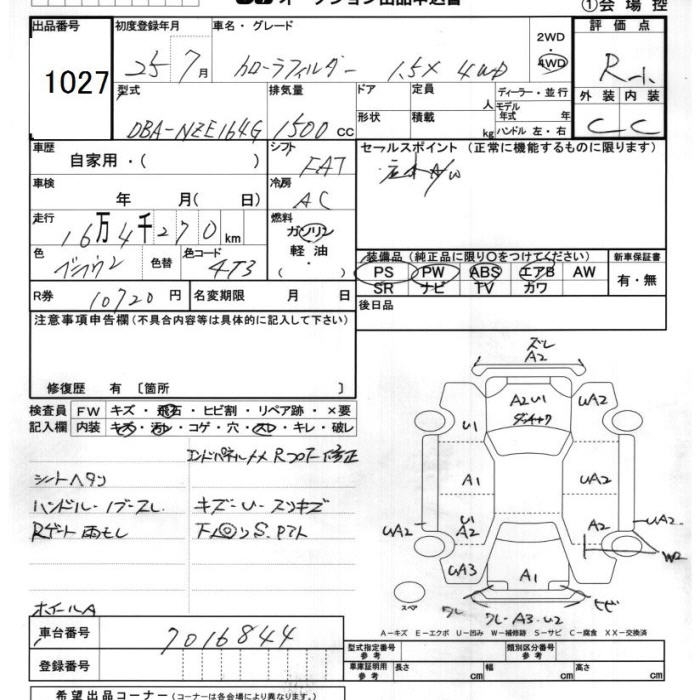 オークション出品申込書
①会場控
出品番号 初度登録年月 車名・グレード 2WD 評価点
1027 25年 7月 カローラフィルダー 1.5X 4WD 4WD R-1
型式 排気量 ドア 定員 人 ディーラー・並行 外装 内装
DBA-NZE164G 1500 CC 形状 積載 kg モデル年式 年 ハンドル 左・右 C C
車歴 自家用・( ) シフト FAT セールスポイント (正常に機能するものに限ります)
車検 年 月( 日) 冷房 AC
走行 16万4千270km 燃料 ガソリン 軽油 ・( )
色 色替 色コード 4T3
装備品 (純正品に限り○をつけてください) 新車保証書
PS PW ABS エアB AW 有・無
SR ナビ TV カワ
R券 10720円 名変期限 月 日 後日品
注意事項申告欄 (不具合内容等は具体的に記入して下さい)
修復歴 有 〔箇所 〕
検査員 FW キズ・飛石・ヒビ割・リペア跡・×要
記入欄 内装 キズ・汚レ・コゲ・穴・スレ・キレ・破レ
エンドパネルメメ Rフロアー修正
シートヘタリ
ハンドル・ノブ・スレ キズ・U・スリキズ
Rゲート雨もし 下廻りS.
ホイールA
ズレ
A2
A2U1
UA2
U1
A1
UA2
U1
A2
A2
UA2
UA2
W2
UA3
A1
スペア
ワレ
ワレ・A3・U2
ヒビ
A－キズ E－エクボ U－凹み W－補修跡 S－サビ C－腐食 XX－交換済
車台番号 7016844
登録番号
型式指定番号 参考 類別区分番号 参考
車庫証明用 参考 長さ cm 幅 cm 高さ cm
希望出品コーナー (コーナーは各会場により異なります。)